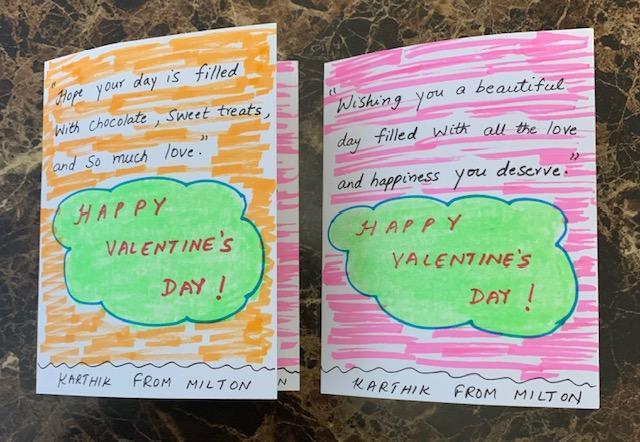 "Hope your day is filled
With chocolate, Sweet treats,
and So much love."
HAPPY
VALENTINE'S
DAY!
KARTHIK FROM MILTON
N
"Wishing you a beautiful
day filled With all the love
and happiness you deserve."
HAPPY
VALENTINE'S
DAY!
KARTHIK FROM MILTON